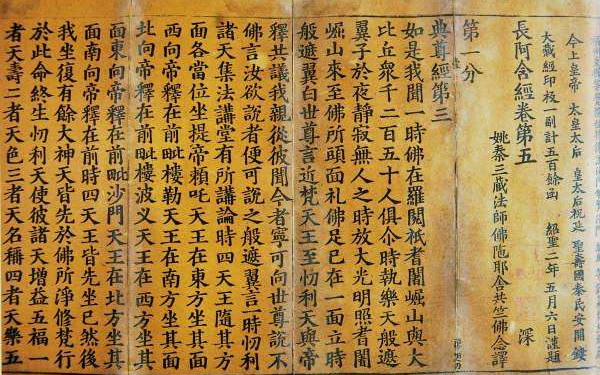 今上皇帝 太皇太后 皇太后祝延 聖壽國泰民安開鏤
大藏經印板一副計五百餘函 紹聖二年五月六日謹題
長阿含經卷第五 深
姚秦三藏法師佛陁耶舍共竺佛念譯
第一分
典尊經第三
如是我聞一時佛在羅閱祇耆闍崛山與大
比丘衆千二百五十人俱尒時執樂天般遮
翼子於夜靜寂無人之時放大光明照耆闍
崛山來至佛所頭面礼佛足已在一面立時
般遮翼白世尊言近梵天王至忉利天與帝
釋共議我親從彼聞今者寧可向世尊說不
佛言汝欲說者便可說之般遮翼言一時忉利
諸天集法講堂有所講論時四天王隨其方
面各當位坐提帝頼吒天王在東方坐其面
西向帝釋在前毗樓勒天王在南方坐其面
北向帝釋在前毗樓波叉天王在西方坐其
面東向帝釋在前毗沙門天王在北方坐其
面南向帝釋在前時四天王皆先坐已然後
我坐復有餘大神天皆先於佛所淨修梵行
於此命終生忉利天使彼諸天增益五福一
者天壽二者天色三者天名稱四者天樂五